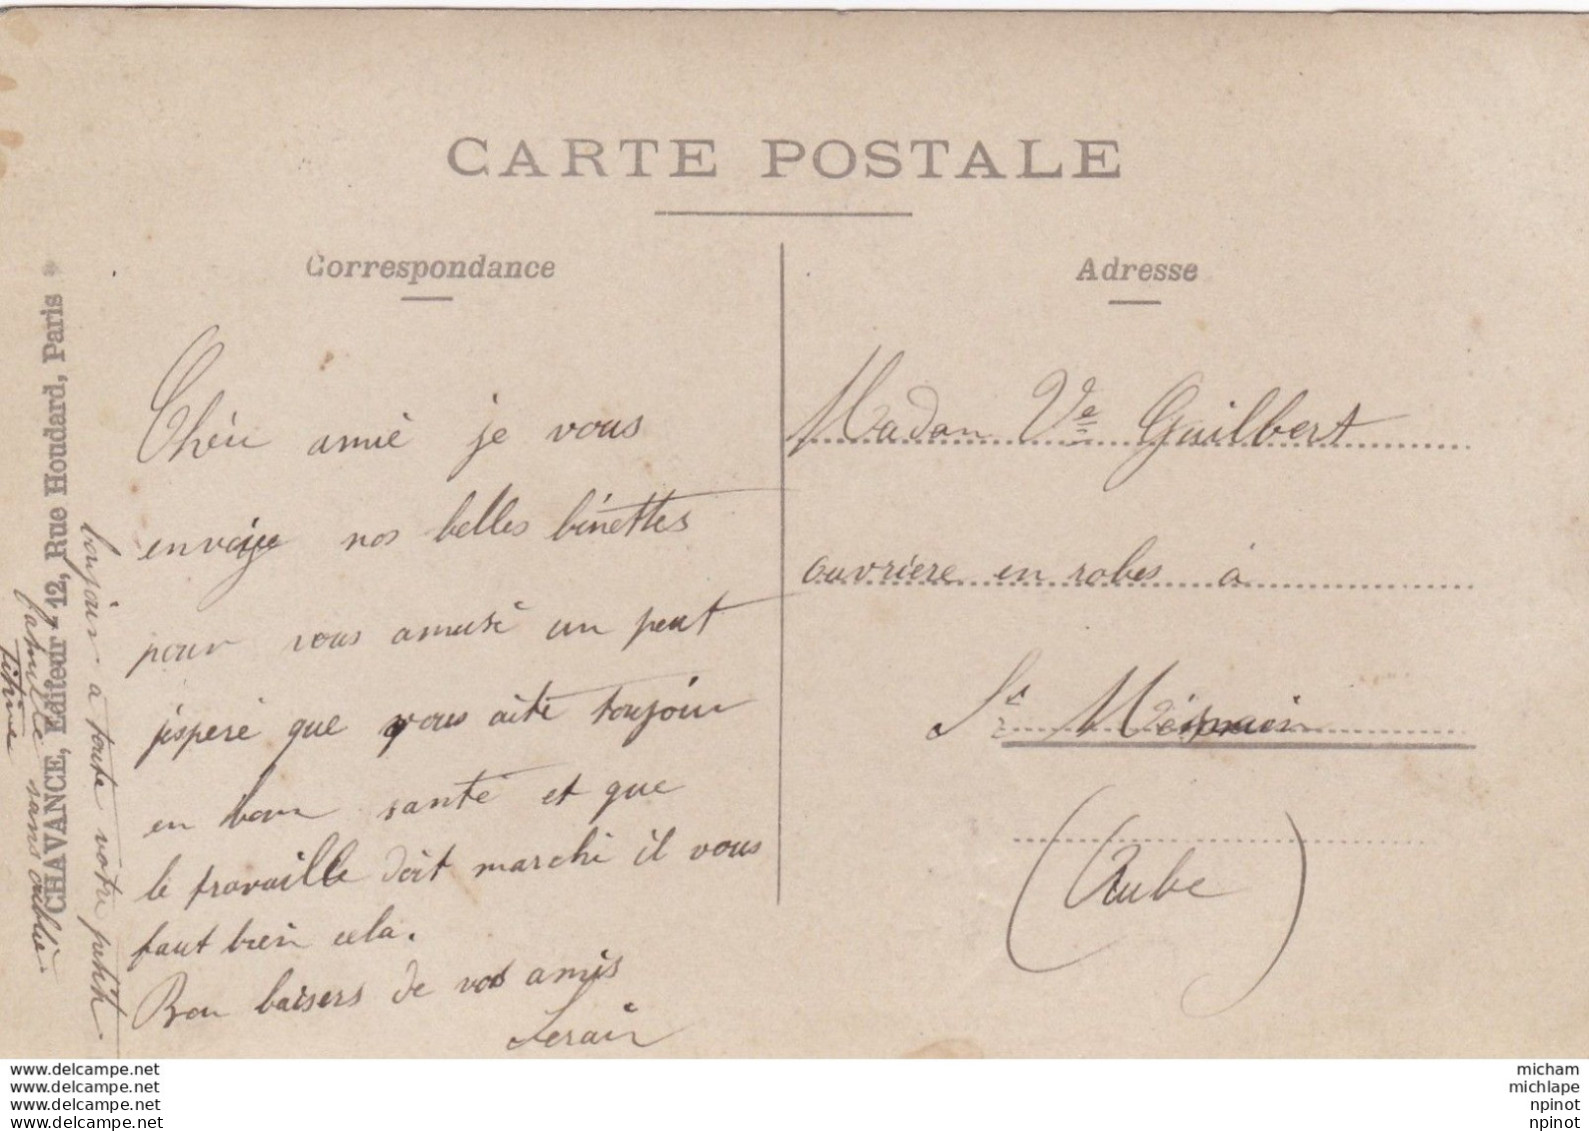 CARTE POSTALE
Correspondance
Adresse
Chèie amié je vous
envoije nos belles binettes
pour vous amusé un peut
j'esperé que vous aité toujoir
en bonn santé et que
le travaille doit marché il vous
faut bien cela.
Bon baisers de vos amis
Lerair
bonjoir à toute votre petite
famille sans oublié
Titine
CHAVANCE, Editeur, 12, Rue Houdard, Paris
Madam Vᵉ Guilbert
ouvriere en robes à
Sᵗ Mesmin
(Aube)
www.delcampe.net
www.delcampe.net
www.delcampe.net
www.delcampe.net
micham
michlape
npinot
npinot